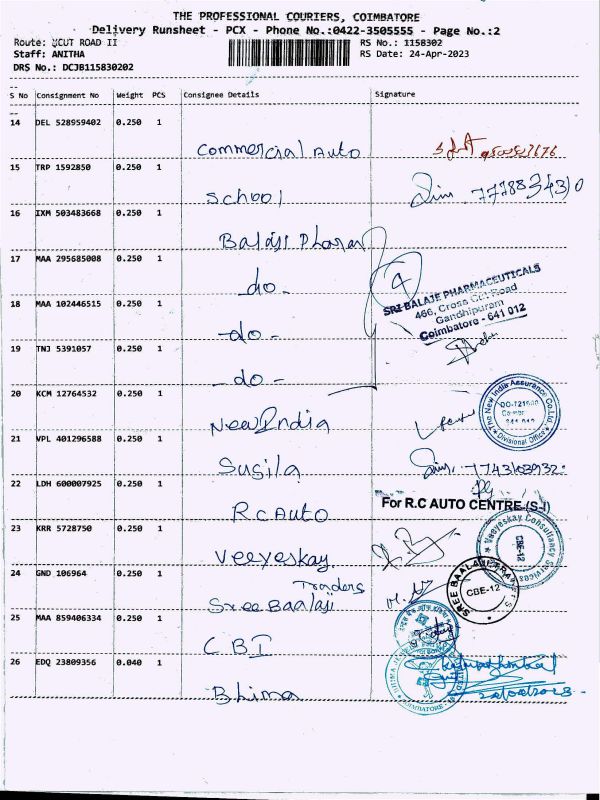 THE PROFESSIONAL COURIERS, COIMBATORE
Delivery Runsheet - PCX - Phone No.:0422-3505555 - Page No.:2
Route: UCUT ROAD II RS No.: 1158302
Staff: ANITHA RS Date: 24-Apr-2023
DRS No.: DCJB115830202
S No Consignment No Weight PCS Consignee Details Signature
14 DEL 528959402 0.250 1
Commercial Auto
15 TRP 1592850 0.250 1
School
16 IXM 503483668 0.250 1
Balaji Pharma
17 MAA 295685008 0.250 1
-do-
SRI BALAJE PHARMACEUTICALS
466, Cross Cut Road
Gandhipuram
Coimbatore - 641 012
18 MAA 102446515 0.250 1
-do-
19 TNJ 5391057 0.250 1
-do-
20 KCM 12764532 0.250 1
New India
The New India Assurance Co.Ltd.
Divisional Office
21 VPL 401296588 0.250 1
Susila
22 LDH 600007925 0.250 1
RC Auto
For R.C AUTO CENTRE (S-I)
23 KRR 5728750 0.250 1
Veeyeskay
Veeyeskay Consultancy Services
CBE-12
24 GND 106964 0.250 1
Traders
Sree Baalaji
CBE-12
25 MAA 859406334 0.250 1
CBI
26 EDQ 23809356 0.040 1
Bhima